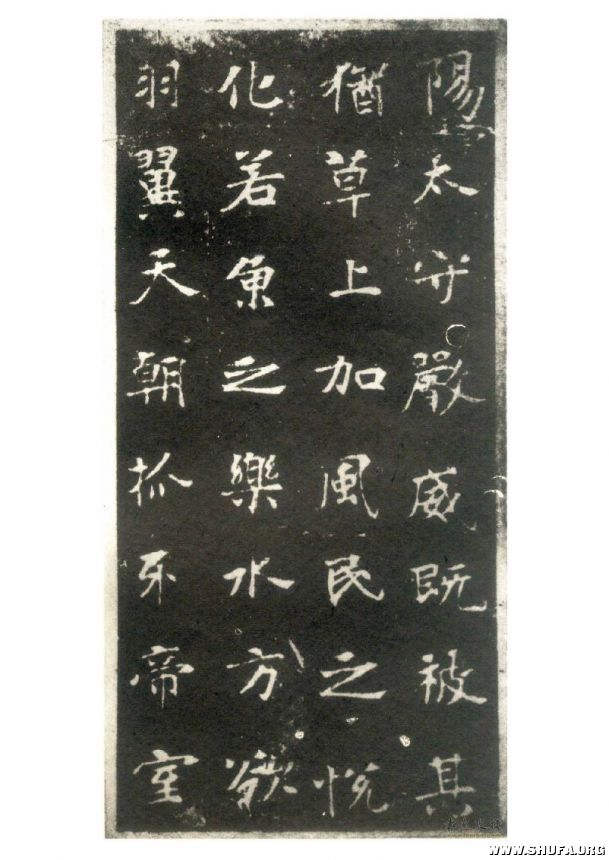 陽太守嚴威既被其
猶草上加風民之悅
化若魚之樂水方欲
羽翼天朝抓牙帝室
WWW.SHUFA.ORG